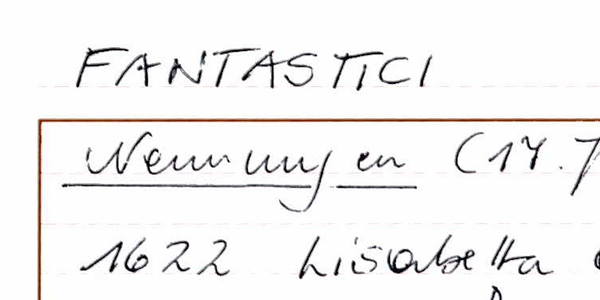 FANTASTICI
Nennungen (17.7
1622 Lisabetta